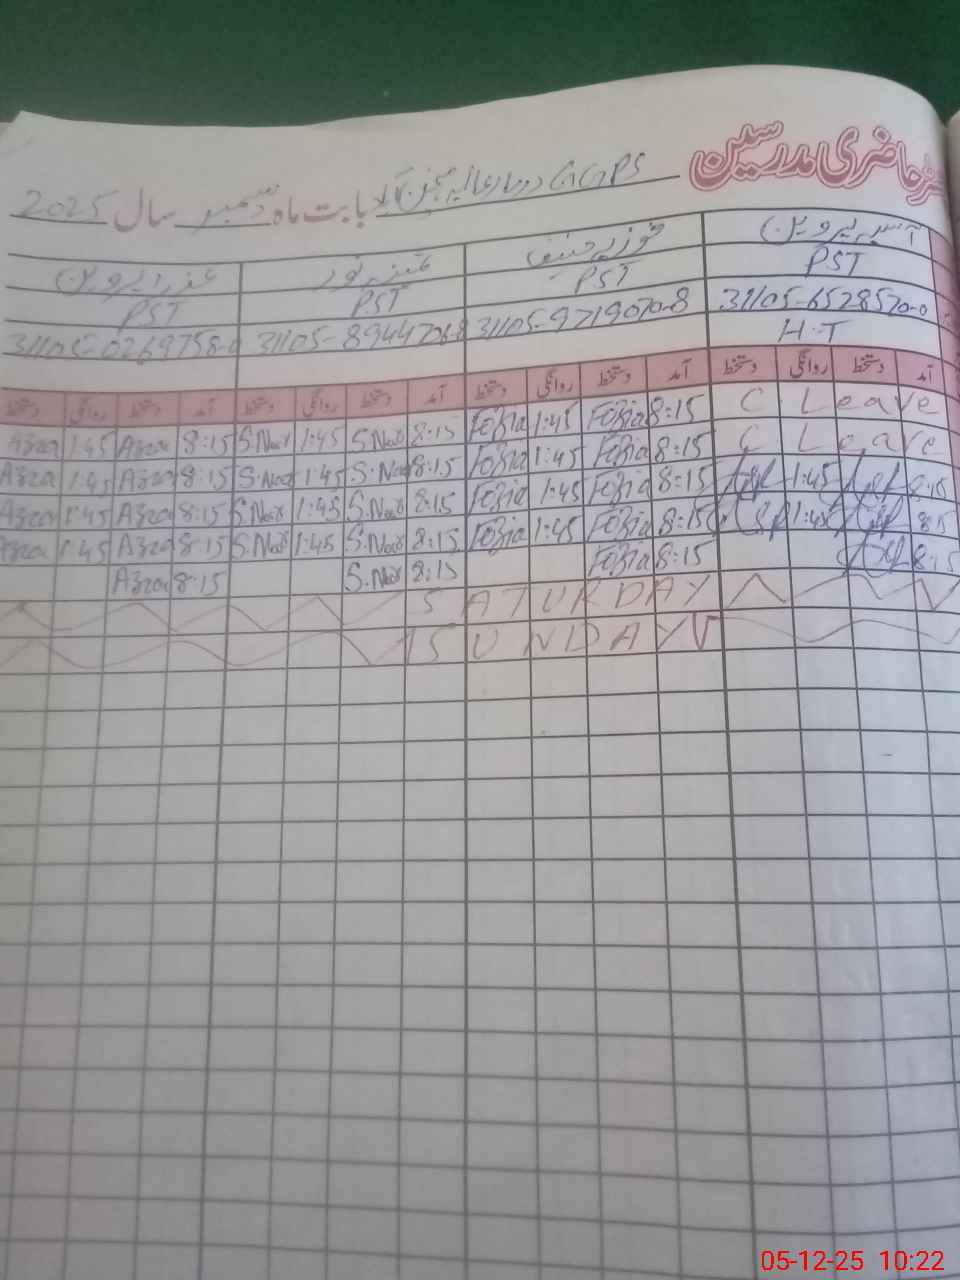 حاضری مدرسین
GGPS
بابت ماہ دسمبر سال 2025
آسیہ پروین فوزیہ حنیف نور عذرا پروین
PST PST PST PST
31105-6528570-0 31105-9719070-8 31105-8944706-8 31105-0269758-
H.T
آمد دستخط روانگی دستخط آمد دستخط روانگی دستخط آمد دستخط روانگی دستخط آمد دستخط روانگی دستخط
Azra 1:45 Azra 8:15 S.Noor 1:45 S.Noor 8:15 Fozia 1:45 Fozia 8:15 C Leave
Azra 1:45 Azra 8:15 S.Noor 1:45 S.Noor 8:15 Fozia 1:45 Fozia 8:15 C Leave
Azra 1:45 Azra 8:15 S.Noor 1:45 S.Noor 8:15 Fozia 1:45 Fozia 8:15 1:45 8:15
Azra 1:45 Azra 8:15 S.Noor 1:45 S.Noor 8:15 Fozia 1:45 Fozia 8:15 1:45 8:15
Azra 8:15 S.Noor 8:15 Fozia 8:15 8:15
SATURDAY
SUNDAY
05-12-25 10:22